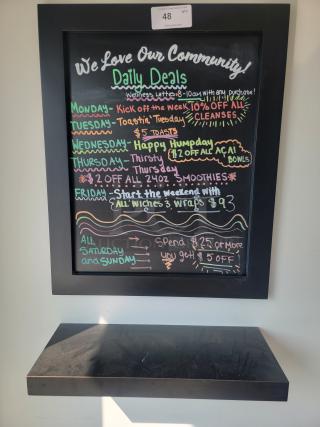 48
We Love Our Community!
Daily Deals
Wellness Latte 8-10am with any purchase!
MONDAY- Kick off the week 10% OFF ALL CLEANSES
TUESDAY- Toastin' Tuesday
$5 TOASTS
WEDNESDAY- Happy Humpday
$2 OFF ALL ACAI BOWLS
THURSDAY- Thirsty Thursday
$2 OFF ALL 24OZ SMOOTHIES
FRIDAY- Start the weekend with
ALL WICHES & WRAPS $9
ALL SATURDAY and SUNDAY
Spend $25 or more
you get $5 OFF